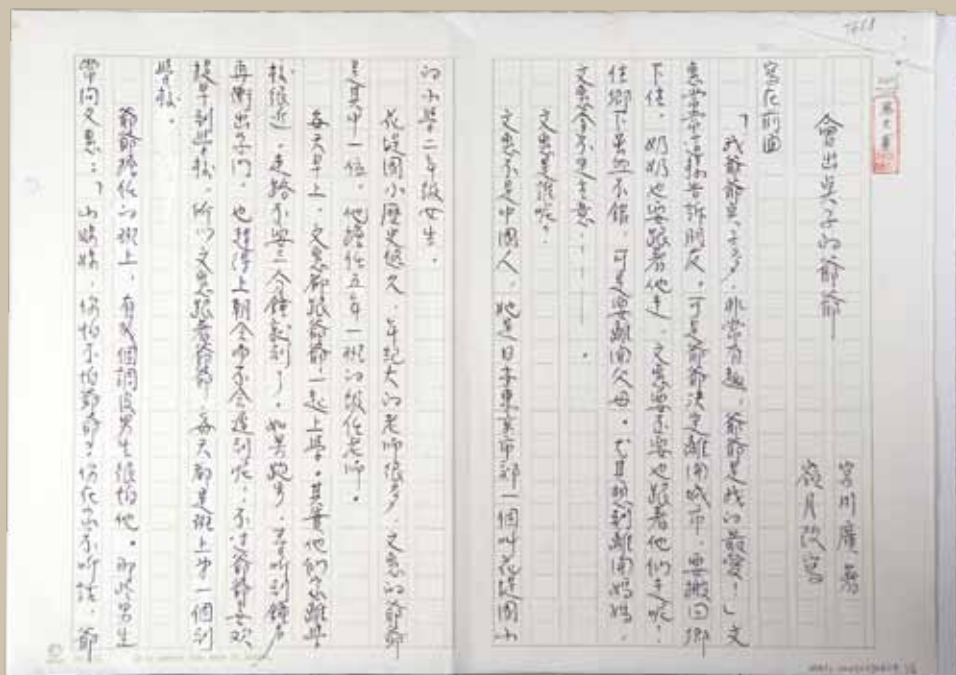 會出點子的爺爺
宮川廣 著
嶺月 改寫
寫在前面
「我爺爺點子多,非常有趣,爺爺是我的最愛!」文
惠常常這樣告訴朋友。可是爺爺決定離開城市,要搬回鄉
下住,奶奶也要跟著他走,文惠要不要也跟著他們走呢?
住鄉下虽然不錯,可是要離開父母,尤其想到離開媽媽,
文惠拿不定主意……。
文惠是誰呢?
文惠不是中國人,她是日本東京市郊一個叫花堤國小
的小學二年級女生。
花堤國小歷史悠久,年紀大的老師很多,文惠的爺爺
是其中一位,他擔任五年一班的級任老師。
每天早上,文惠都跟爺爺一起上學。其實他們家離學
校很近,走路不要三分鐘就到了。如果跑步,去听到鐘声
再衝出家門,也趕得上朝会而不会遲到呢。不过爺爺喜欢
提早到學校,所以文惠跟著爺爺,每天都是班上第一個到
學校。
爺爺擔任的班上,有幾個調皮男生很怕他。那些男生
常问文惠:「小妹妹,你怕不怕爺爺?你在家不听話,爺